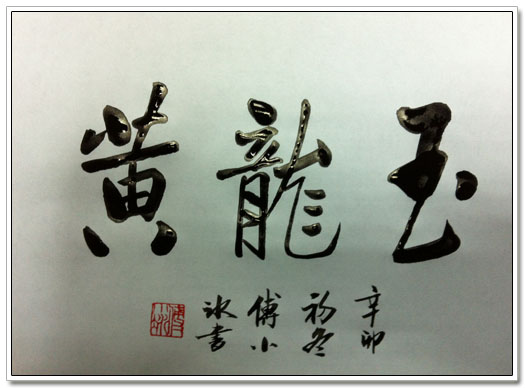 黄龍玉
辛卯
初冬
傅小
冰書